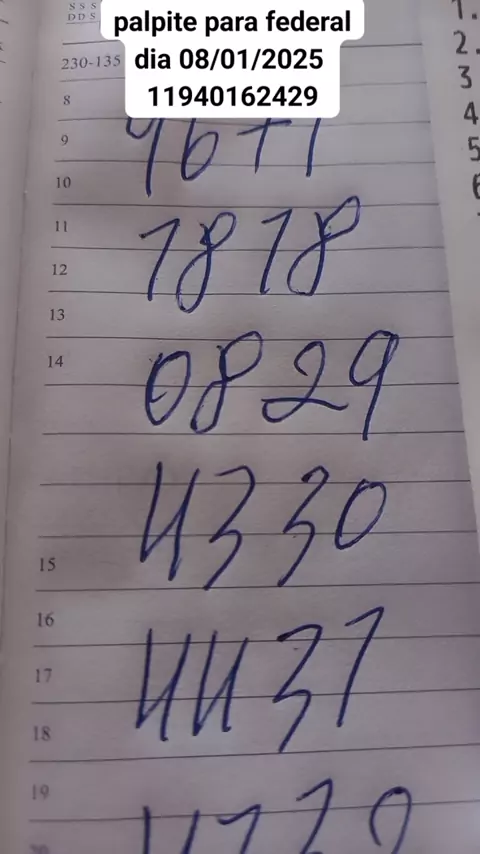 S S S
D D S
palpite para federal
dia 08/01/2025
11940162429
230-135
8
9
10
11
12
13
14
15
16
17
18
19
1818
0829
4330
4437
1.
2.
3
4
5